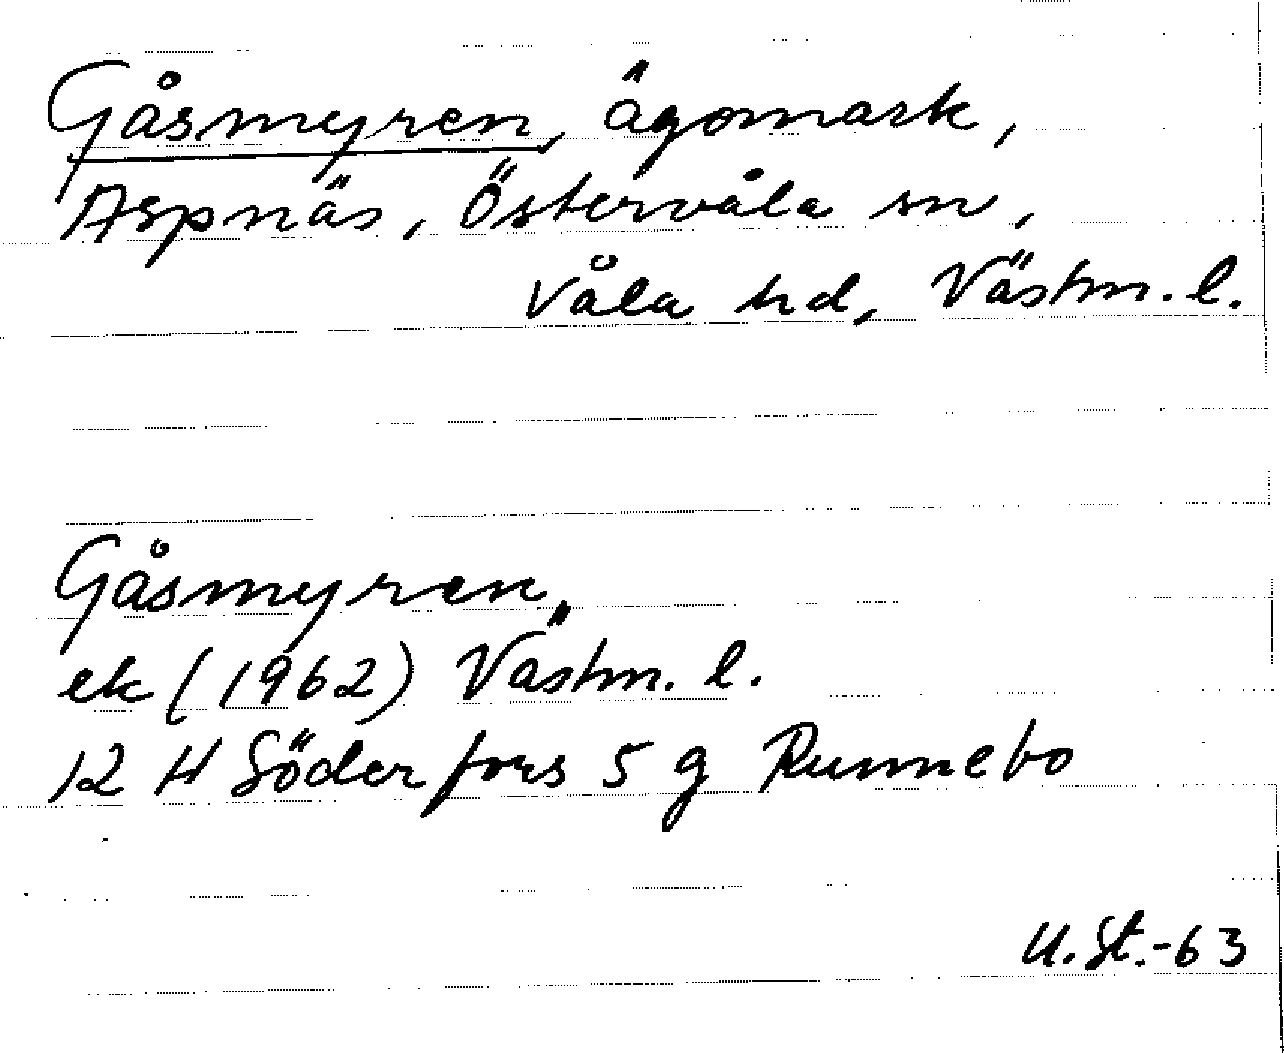 Gåsmyren, ägomark,
Aspnäs, Östervåla sn,
Våla hd, Västm. l.
Gåsmyren,
ek (1962) Västm. l.
12 H Söderfors 5 g Runnebo
U. St.-63